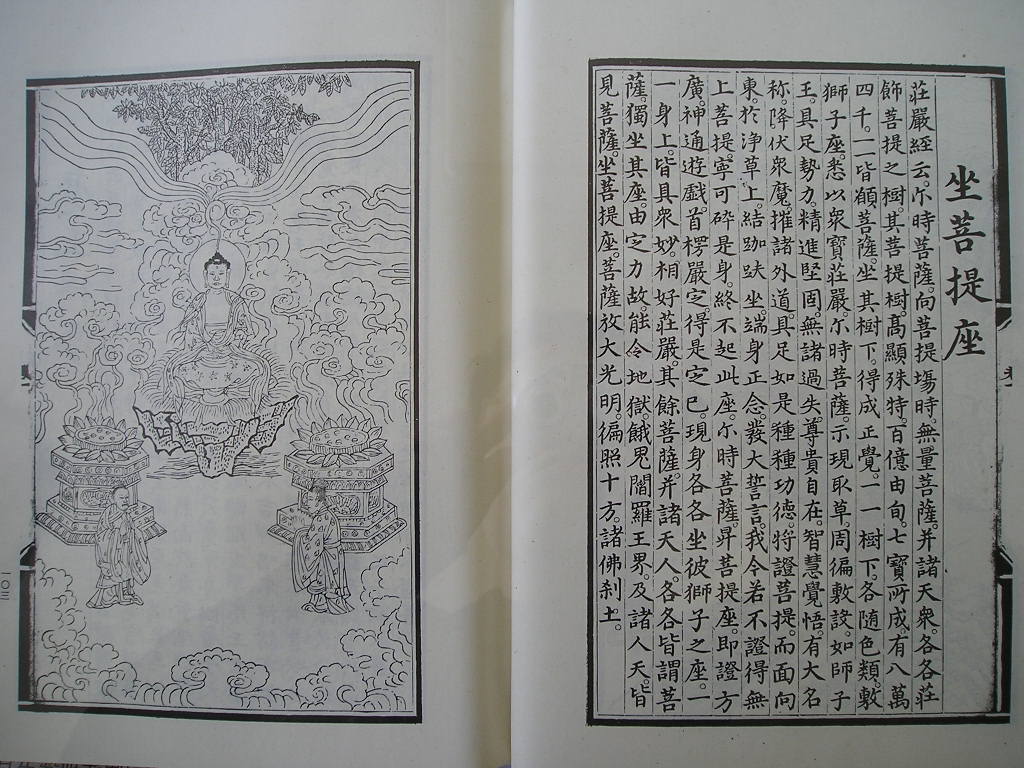 坐菩提座
莊嚴經云。尒時菩薩。向菩提場時。無量菩薩。并諸天衆。各各莊
飾菩提之樹。其菩提樹。髙顯殊特。百億由旬。七寶所成。有八萬
四千。一一皆願菩薩。坐其樹下。得成正覺。一一樹下。各随色類。敷
獅子座。悉以衆寶莊嚴。尒時菩薩。示現取草。周徧敷設。如師子
王。具足勢力。精進堅固。無諸過失。尊貴自在。智慧覺悟。有大名
称。降伏衆魔。摧諸外道。具足如是種種功德。将證菩提。而面向
東。於淨草上。結跏趺坐。端身正念。發大誓言。我今若不證得無
上菩提。寧可碎是身。終不起此座。尒時菩薩。昇菩提座。即證方
廣。神通遊戲。首楞嚴定。得是定已。現身各各坐彼獅子之座。一
一身上。皆具衆妙。相好莊嚴。其餘菩薩。并諸天人。各各皆謂菩
薩。獨坐其座。由定力故。能令地獄。餓鬼。閻羅王界。及諸人天。皆
見菩薩。坐菩提座。菩薩放大光明。徧照十方。諸佛刹土。